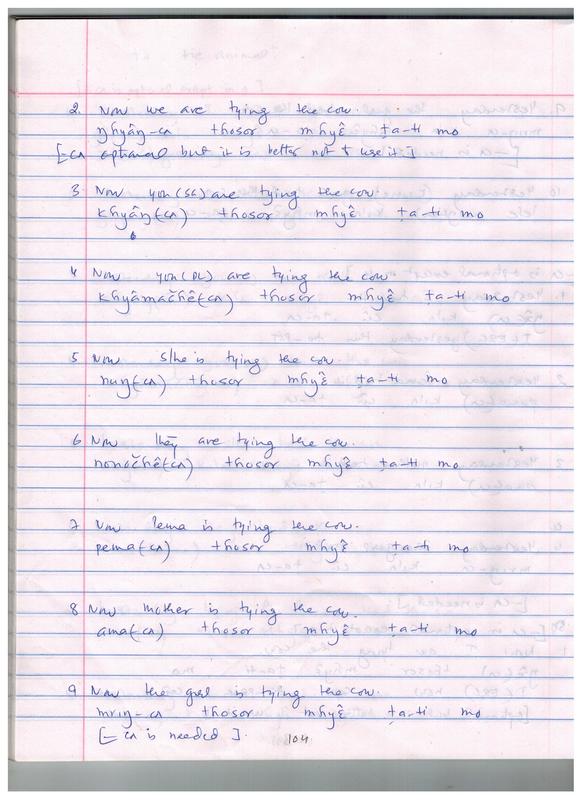 2. Now we are tying the cow.
ŋhyâŋ-ca thosor mhyɛ̂ ṭa-ti mo
[-ca optional but it is better not to use it]
3 Now you (SG) are tying the cow
khyâŋ(ca) thosor mhyɛ̂ ṭa-ti mo
4 Now you (PL) are tying the cow
khyâmačhê(ca) thosor mhyɛ̂ ṭa-ti mo
5 Now s/he is tying the cow.
nuŋ(ca) thosor mhyɛ̂ ṭa-ti mo
6 Now they are tying the cow.
nonočhê(ca) thosor mhyɛ̂ ṭa-ti mo
7 Now Pema is tying the cow.
pema(ca) thosor mhyɛ̂ ṭa-ti mo
8 Now mother is tying the cow.
ama(ca) thosor mhyɛ̂ ṭa-ti mo
9 Now the girl is tying the cow.
mriŋ-ca thosor mhyɛ̂ ṭa-ti mo
[-ca is needed].
104